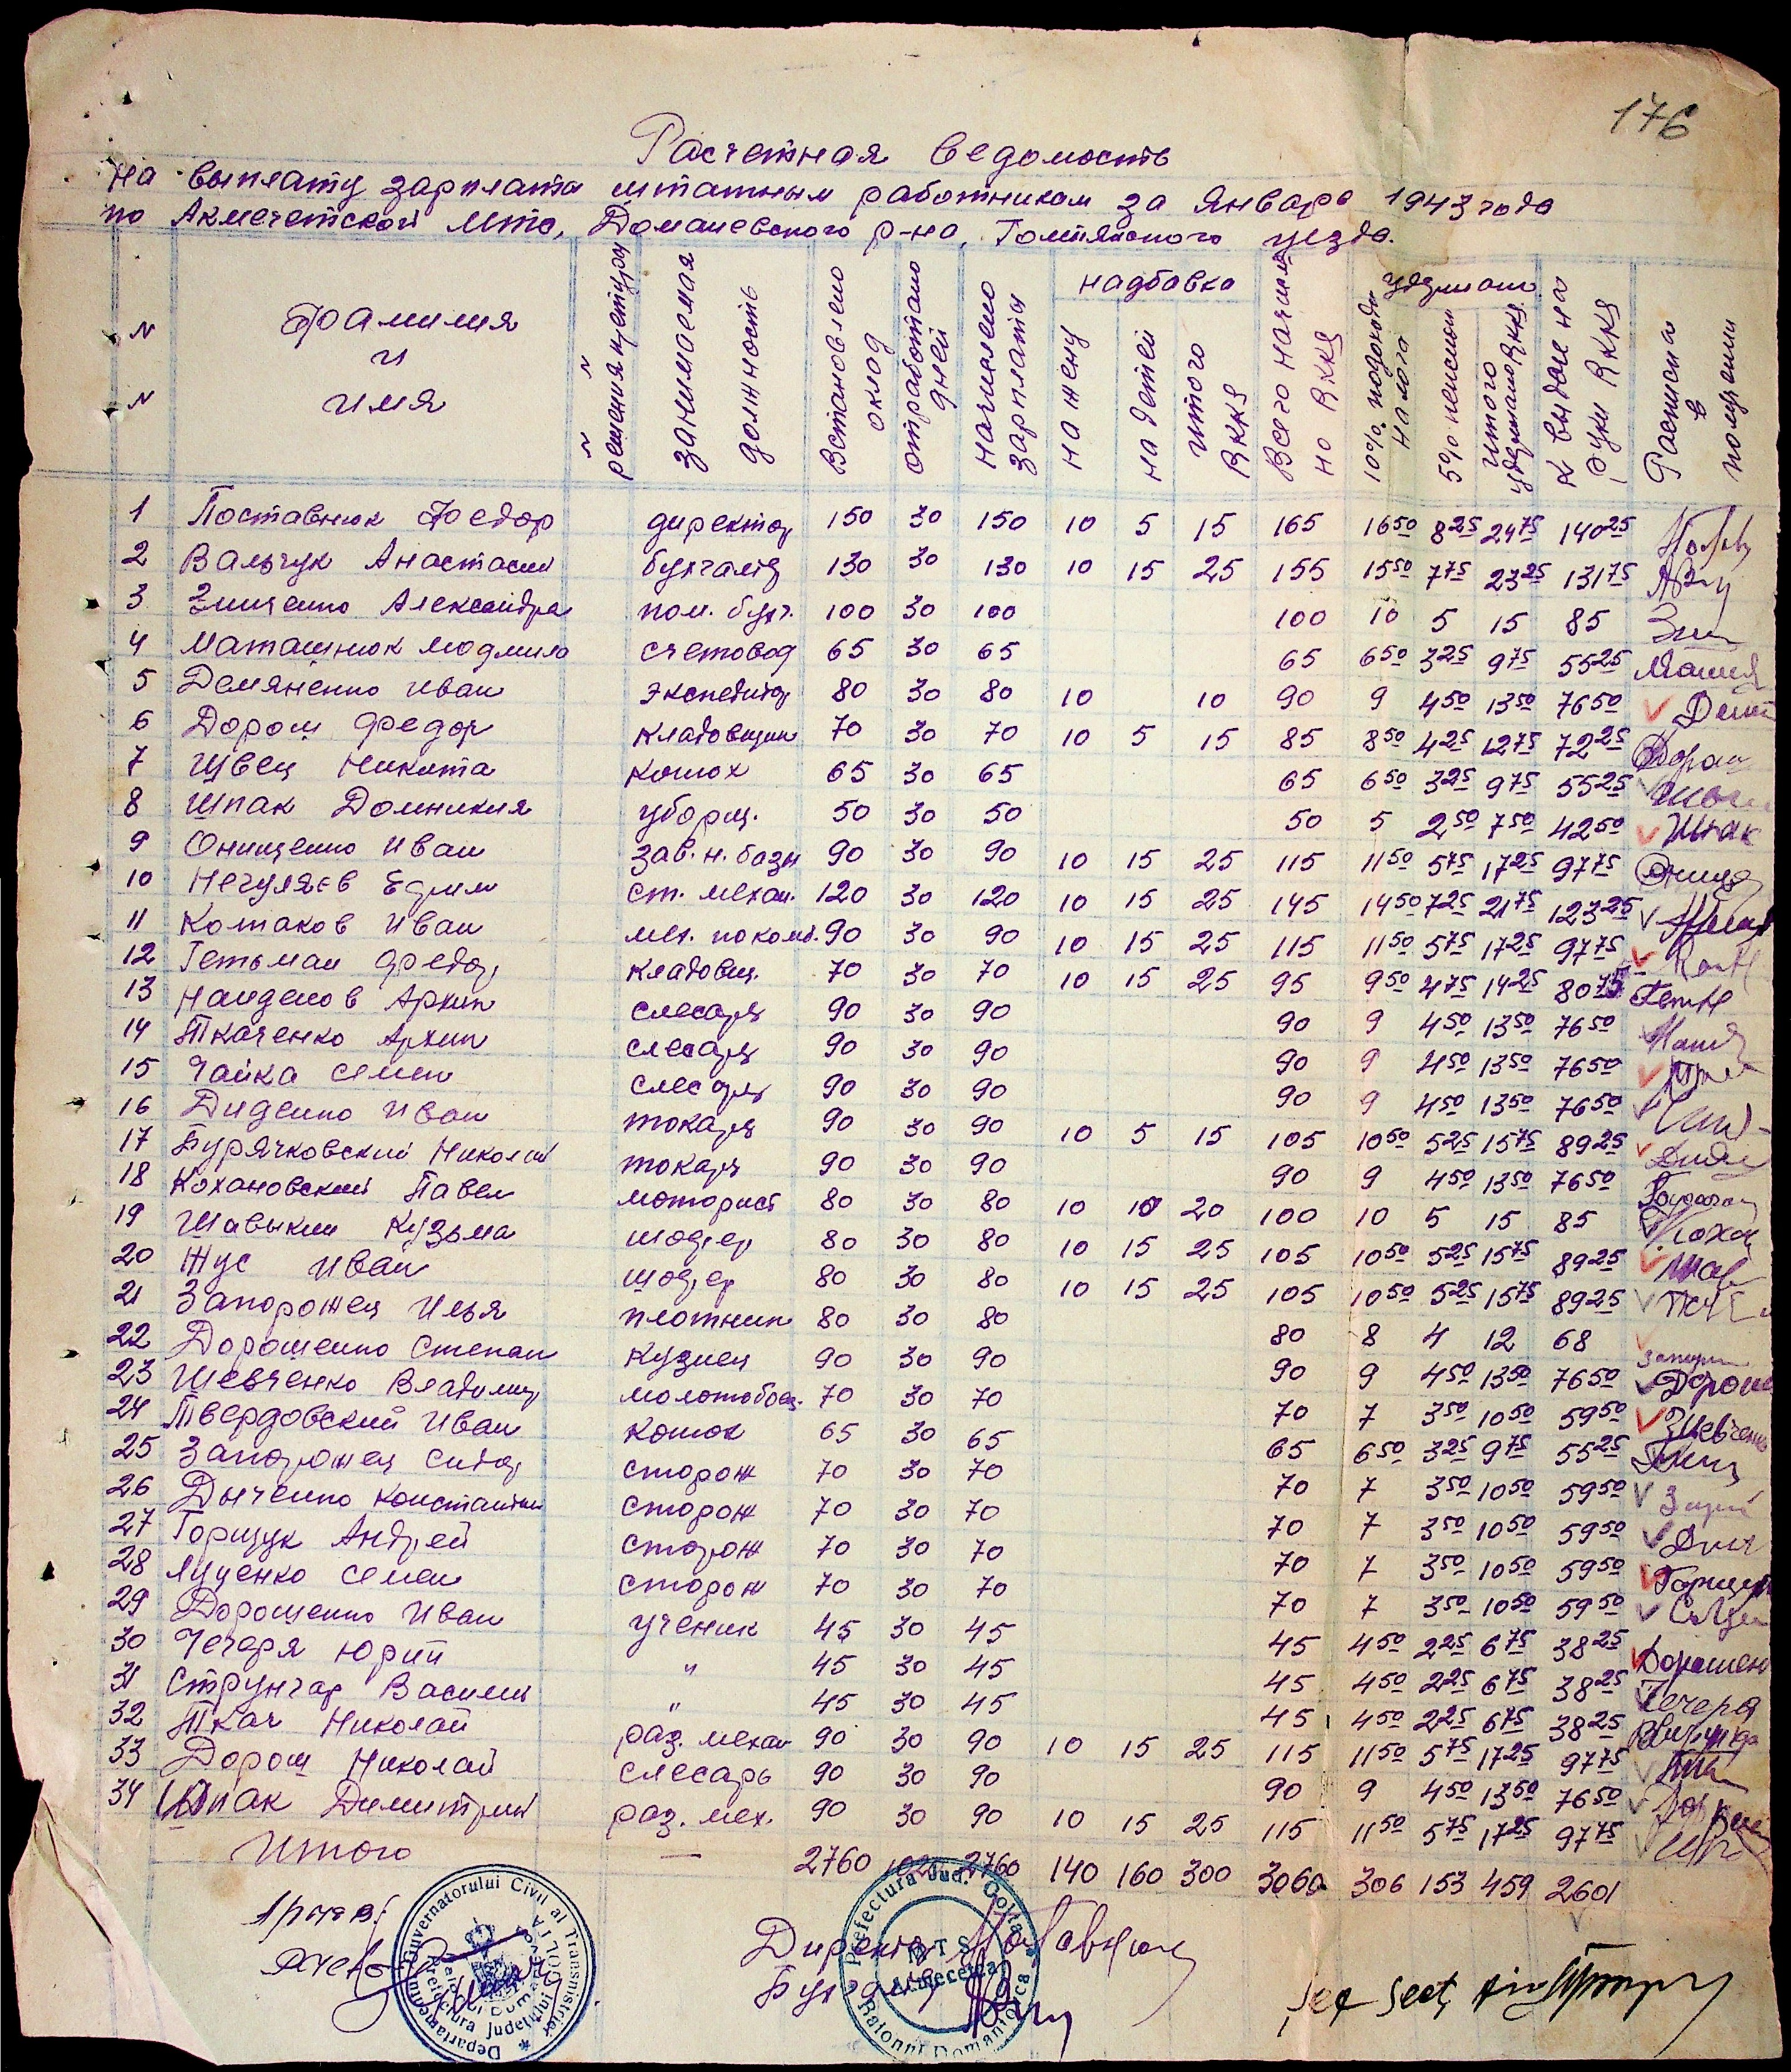 176
Расчетная ведомость
на выплату зарплаты штатным работникам за январь 1943 года
по Акмечетской Мтс, Доманевского р-на, Голтянского уезда.
N N
Фамилия и имя
N N решения претуры
занимаемая должность
Встановлено оклад
отработано дней
начислено зарплаты
надбавка
на жену
на детей
итого RKKS
Всего начисле но RKKS
удержано
10% подоходн налога
5% пенсион
итого удержано RKKS
К выдаче на руки RKKS
Расписка в получении
1 Поставнюк Федор директор 150 30 150 10 5 15 165 16 50 8 25 24 75 140 25
2 Вальчук Анастасий бухгалтер 130 30 130 10 15 25 155 15 50 7 75 23 25 131 75
3 Зинченко Александра пом. бухг. 100 30 100 100 10 5 15 85
4 Маташнюк Людмила счетовод 65 30 65 65 6 50 3 25 9 75 55 25
5 Демяненко Иван экспедитор 80 30 80 10 10 90 9 4 50 13 50 76 50
6 Дорош Федор кладовщик 70 30 70 10 5 15 85 8 50 4 25 12 75 72 25 Дорош
7 Швец Никита конюх 65 30 65 65 6 50 3 25 9 75 55 25
8 Шпак Домникия уборщ. 50 30 50 50 5 2 50 7 50 42 50 Шпак
9 Онищенко Иван зав. н. базы 90 30 90 10 15 25 115 11 50 5 75 17 25 97 75
10 Негуляев Ефим ст. механ. 120 30 120 10 15 25 145 14 50 7 25 21 75 123 25
11 Колтаков Иван мех. по комб. 90 30 90 10 15 25 115 11 50 5 75 17 25 97 75
12 Гетьман Федор кладовщ. 70 30 70 10 15 25 95 9 50 4 75 14 25 80 75
13 Найденов Архип слесарь 90 30 90 90 9 4 50 13 50 76 50
14 Ткаченко Архип слесарь 90 30 90 90 9 4 50 13 50 76 50
15 Чайка Семен слесарь 90 30 90 90 9 4 50 13 50 76 50
16 Диденко Иван токарь 90 30 90 10 5 15 105 10 50 5 25 15 75 89 25
17 Бурячковский Николай токарь 90 30 90 90 9 4 50 13 50 76 50
18 Кохановский Павел моторист 80 30 80 10 10 20 100 10 5 15 85
19 Шавыкин Кузьма шофер 80 30 80 10 15 25 105 10 50 5 25 15 75 89 25 Шав
20 Жус Иван шофер 80 30 80 10 15 25 105 10 50 5 25 15 75 89 25
21 Запорожец Илья плотник 80 30 80 80 8 4 12 68
22 Дорошенко Степан кузнец 90 30 90 90 9 4 50 13 50 76 50
23 Шевченко Владимир молотобоец. 70 30 70 70 7 3 50 10 50 59 50 Шевченко
24 Твердовский Иван конюх 65 30 65 65 6 50 3 25 9 75 55 25
25 Запорожец Сидор сторож 70 30 70 70 7 3 50 10 50 59 50
26 Дыченко Константин сторож 70 30 70 70 7 3 50 10 50 59 50
27 Горщук Андрей сторож 70 30 70 70 7 3 50 10 50 59 50 Горщук
28 Яценко Семен сторож 70 30 70 70 7 3 50 10 50 59 50
29 Дорошенко Иван ученик 45 30 45 45 4 50 2 25 6 75 38 25 Дорошен
30 Чечеря Юрий " 45 30 45 45 4 50 2 25 6 75 38 25 Чечеря
31 Струнгар Василий " 45 30 45 45 4 50 2 25 6 75 38 25
32 Ткач Николай раз. механ 90 30 90 10 15 25 115 11 50 5 75 17 25 97 75
33 Дорош Николай слесарь 90 30 90 90 9 4 50 13 50 76 50
34 Шпак Димитрий раз. мех. 90 30 90 10 15 25 115 11 50 5 75 17 25 97 75
Итого — 2760 1020 2760 140 160 300 3060 306 153 459 2601
Guvernatorului Civil al Transnistriei
Prefectura Județului
Departamentul
Директор
Бухгалтер
Prefectura Jud. Golta
MTS
Acmecetca
Raionul Domanievca